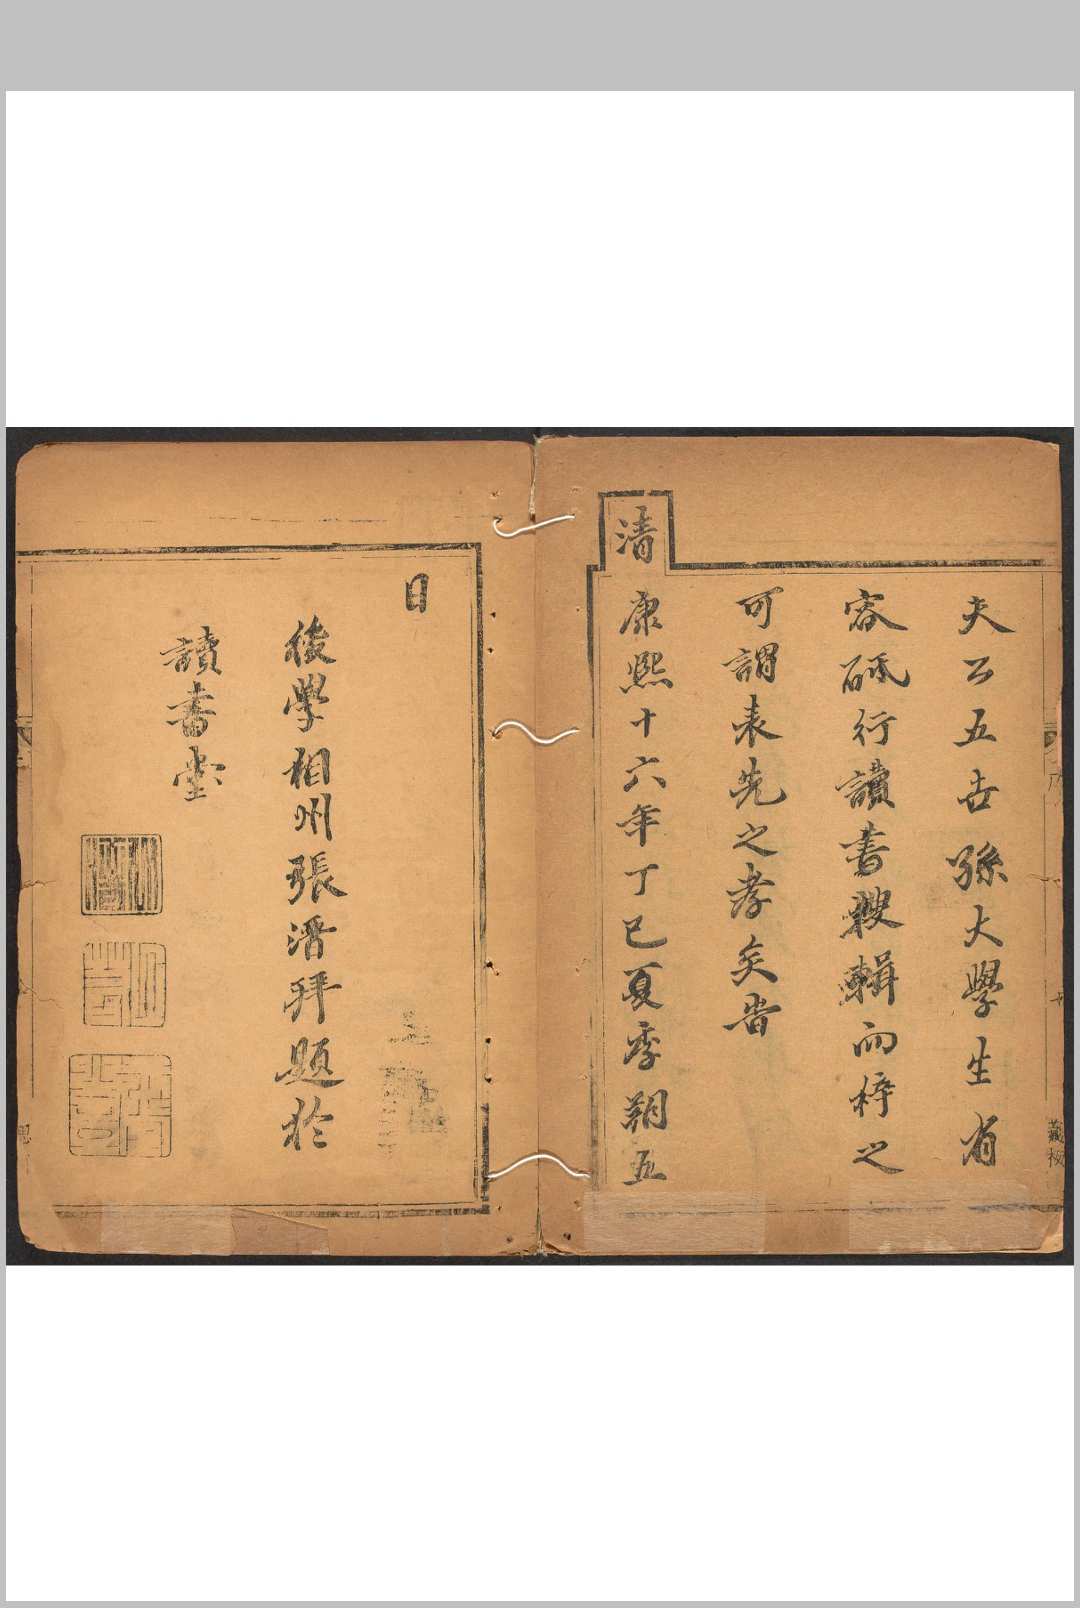 夫公五世孫大學生省
容砥行讀書搜輯而梓之
可謂表先之孝矣旹
清
康熙十六年丁巳夏季朔五
日
後學相州張潛拜題於
讀書堂
藏板